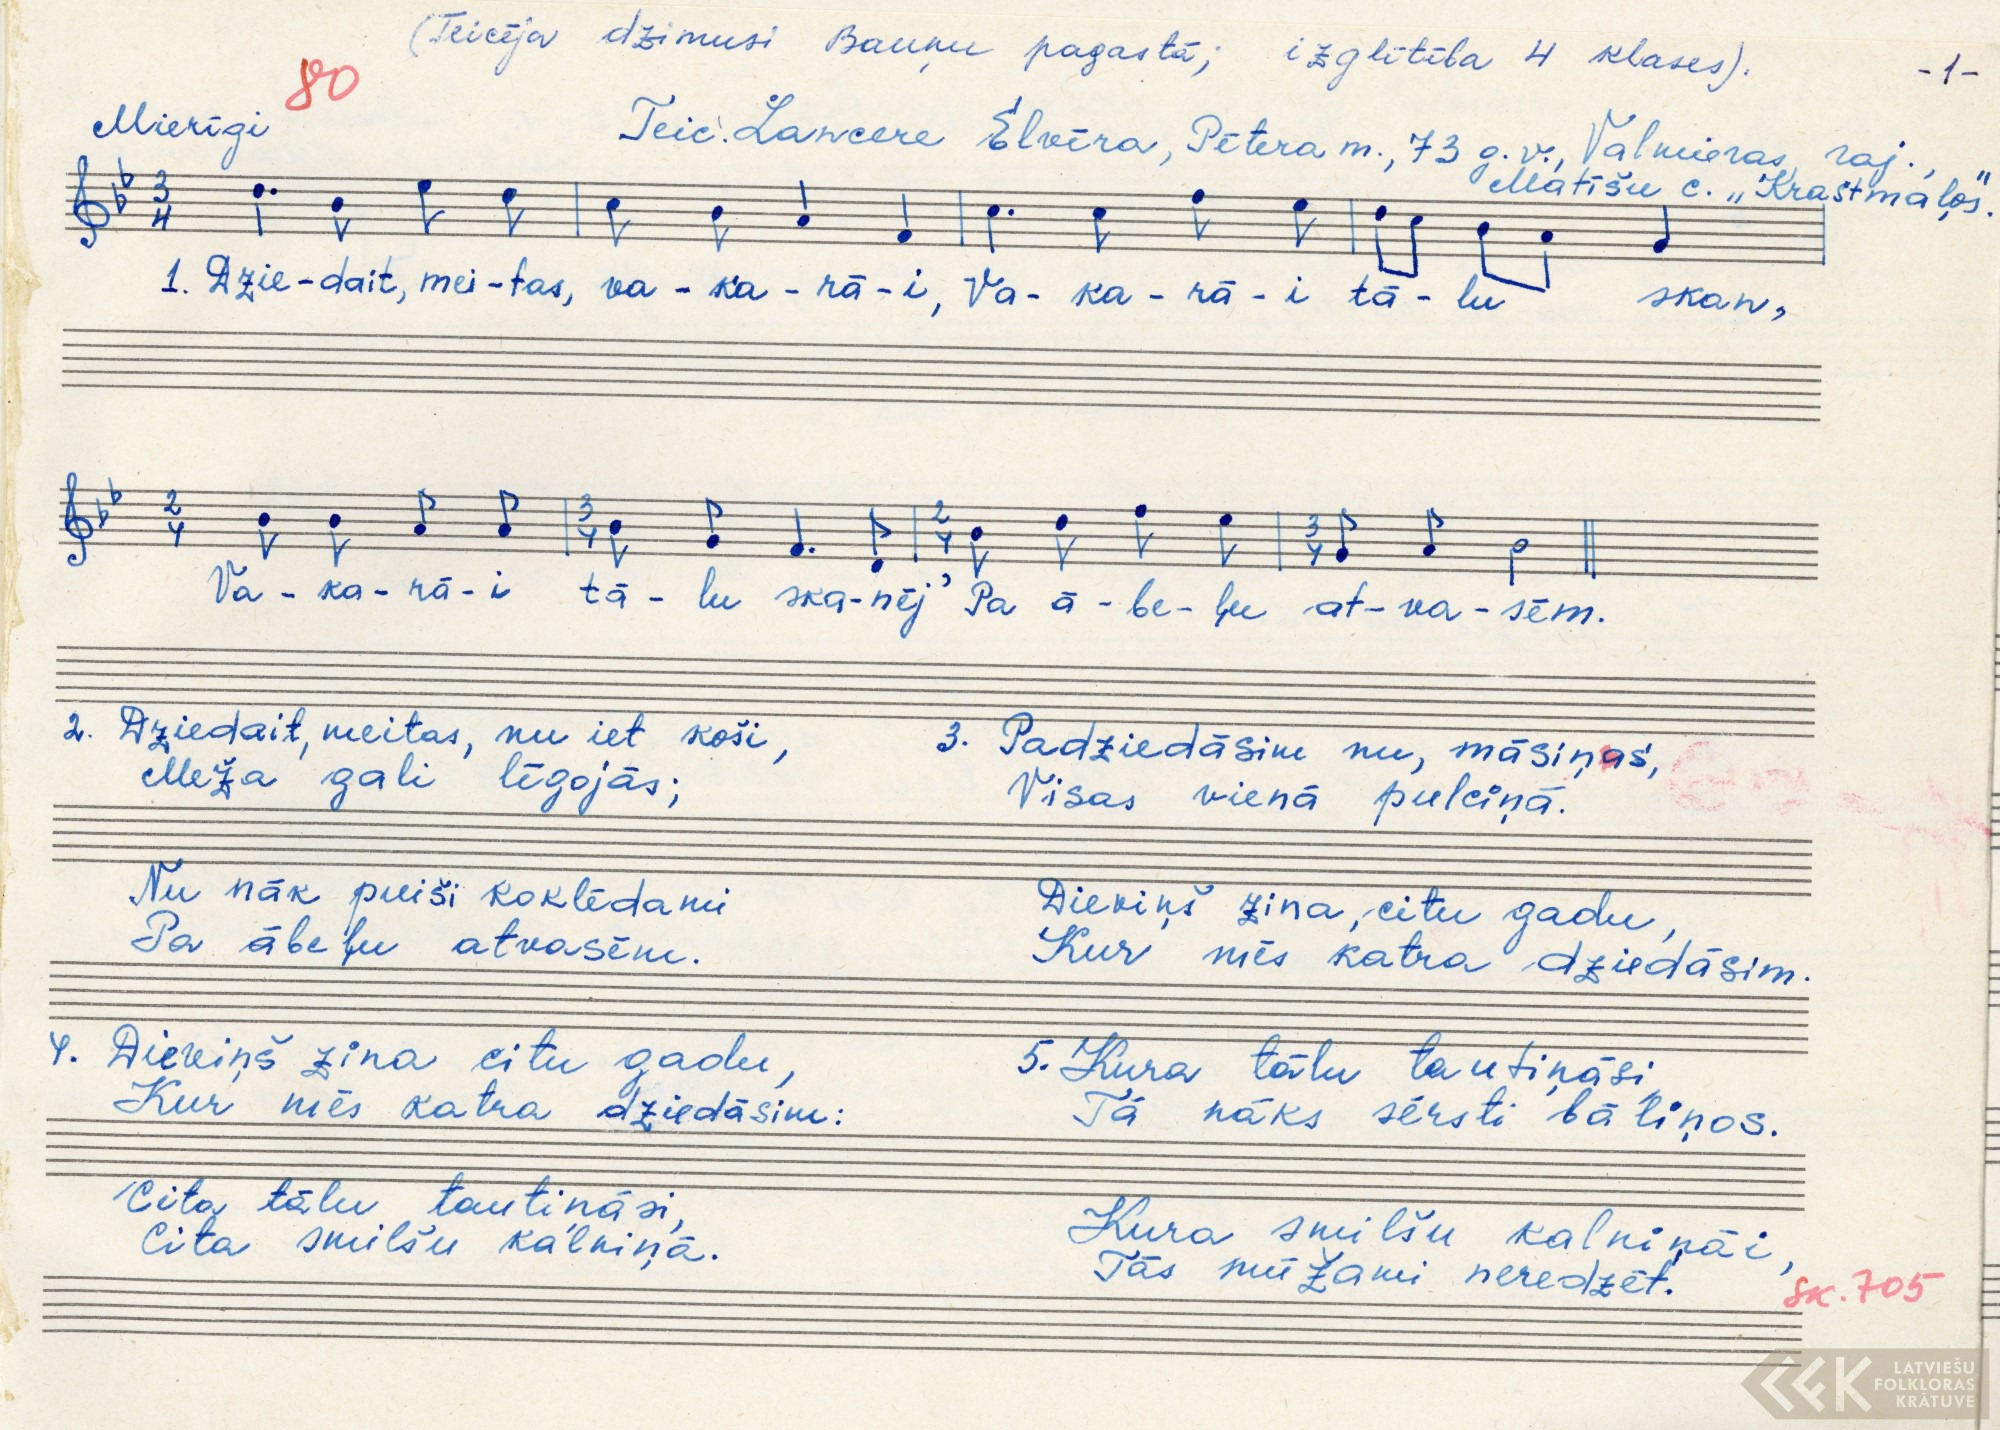 (Teicēja dzimusi Bauņu pagastā; izglītība 4 klases).
-1-
80
Mierīgi
Teic. Lancere Elvīra, Pētera m., 73 g.v., Valmieras raj.,
Matīšu c. „Krastmaļos".
3
4
1. Dzie-dait, mei-tas, va-ka-rā-i, Va-ka-rā-i tā-lu skan,
2
4
3
4
2
4
3
4
Va-ka-rā-i tā-lu ska-nēj' Pa ā-be-ļu at-va-sēm.
2. Dziedait, meitas, nu iet koši,
Meža gali līgojās;
Nu nāk puiši koklēdami
Pa ābeļu atvasēm.
3. Padziedāsim nu, māsiņas,
Visas vienā pulciņā.
Dieviņš zina, citu gadu,
Kur mēs katra dziedāsim.
4. Dieviņš zina citu gadu,
Kur mēs katra dziedāsim:
Cita tālu tautiņāsi,
Cita smilšu kalniņā.
5. Kura tālu tautiņāsi,
Tā nāks sērsti bāliņos.
Kura smilšu kalniņāi,
Tās mūžami neredzēt.
sk. 705
LATVIEŠU
FOLKLORAS
KRĀTUVE